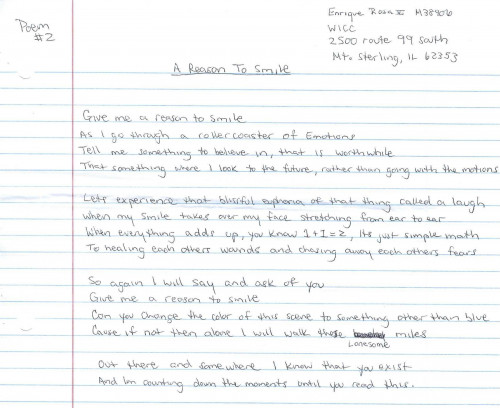 Poem
#2
Enrique Rosa II M38906
WICC
2500 route 99 south
Mt. Sterling, IL 62353
A Reason To Smile
Give me a reason to smile
As I go through a rollercoaster of Emotions
Tell me something to believe in, that is worthwhile
That something where I look to the future, rather than going with the motions
Lets experience that blissful euphoria of that thing called a laugh
When my smile takes over my face stretching from ear to ear
When everything adds up, you know 1+1=2, its just simple math
To healing each others wounds and chasing away each others fears
So again I will say and ask of you
Give me a reason to smile
Can you change the color of this scene to something other than blue
Cause if not then alone I will walk these miles
Lonesome
Out there and somewhere I know that you exist
And Im counting down the moments until you read this.